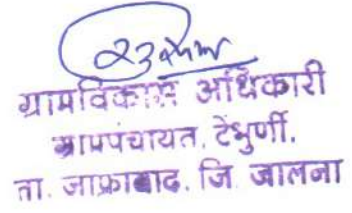 ग्रामविकास अधिकारी
ग्रामपंचायत, टेंभुर्णी.
ता. जाफ्राबाद, जि. जालना